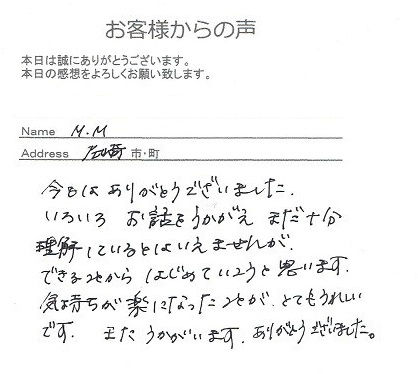 お客様からの声
本日は誠にありがとうございます。
本日の感想をよろしくお願い致します。
Name M.M
Address 市・町
今日はありがとうございました.
いろいろ お話をうかがえ まだ十分
理解しているとはいえませんが、
できることから はじめていこうと思います.
気持ちが楽になったことが、とてもうれしい
です. またうかがいます. ありがとうございました。